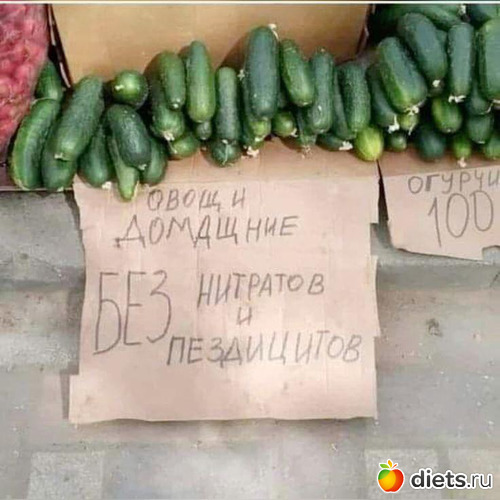 ОВОЩИ
ДОМАЩНИЕ
БЕЗ НИТРАТОВ
И
ПЕЗДИЦИТОВ
ОГУРЧИ
100
diets.ru